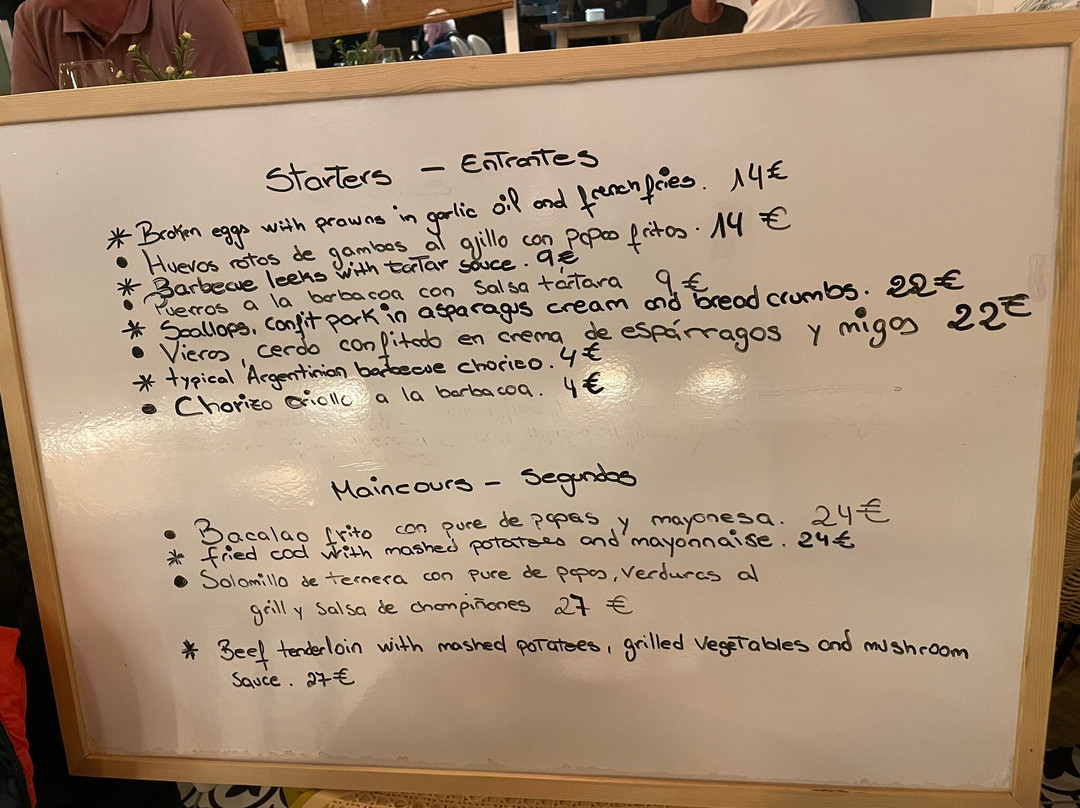 Starters - Entrantes
* Broken eggs with prawns in garlic oil and french fries. 14€
• Huevos rotos de gambas al ajillo con papas fritas. 14 €
* Barbecue leeks with tartar sauce. 9€
• Puerros a la barbacoa con salsa tártara 9€
* Scallops, confit pork in asparagus cream and bread crumbs. 22€
• Vieras, cerdo confitado en crema de espárragos y migas 22€
* typical Argentinian barbecue chorizo. 4€
• Chorizo criollo a la barbacoa. 4€
Maincours - Segundos
• Bacalao frito con pure de papas y mayonesa. 24€
* fried cod with mashed potatoes and mayonnaise. 24€
• Solomillo de ternera con pure de papas, verduras al
grill y salsa de champiñones 27 €
* Beef tenderloin with mashed potatoes, grilled vegetables and mushroom
sauce. 27€